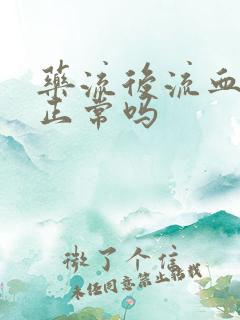 药流后流血
正常吗
微了个信
未经同意禁止转载